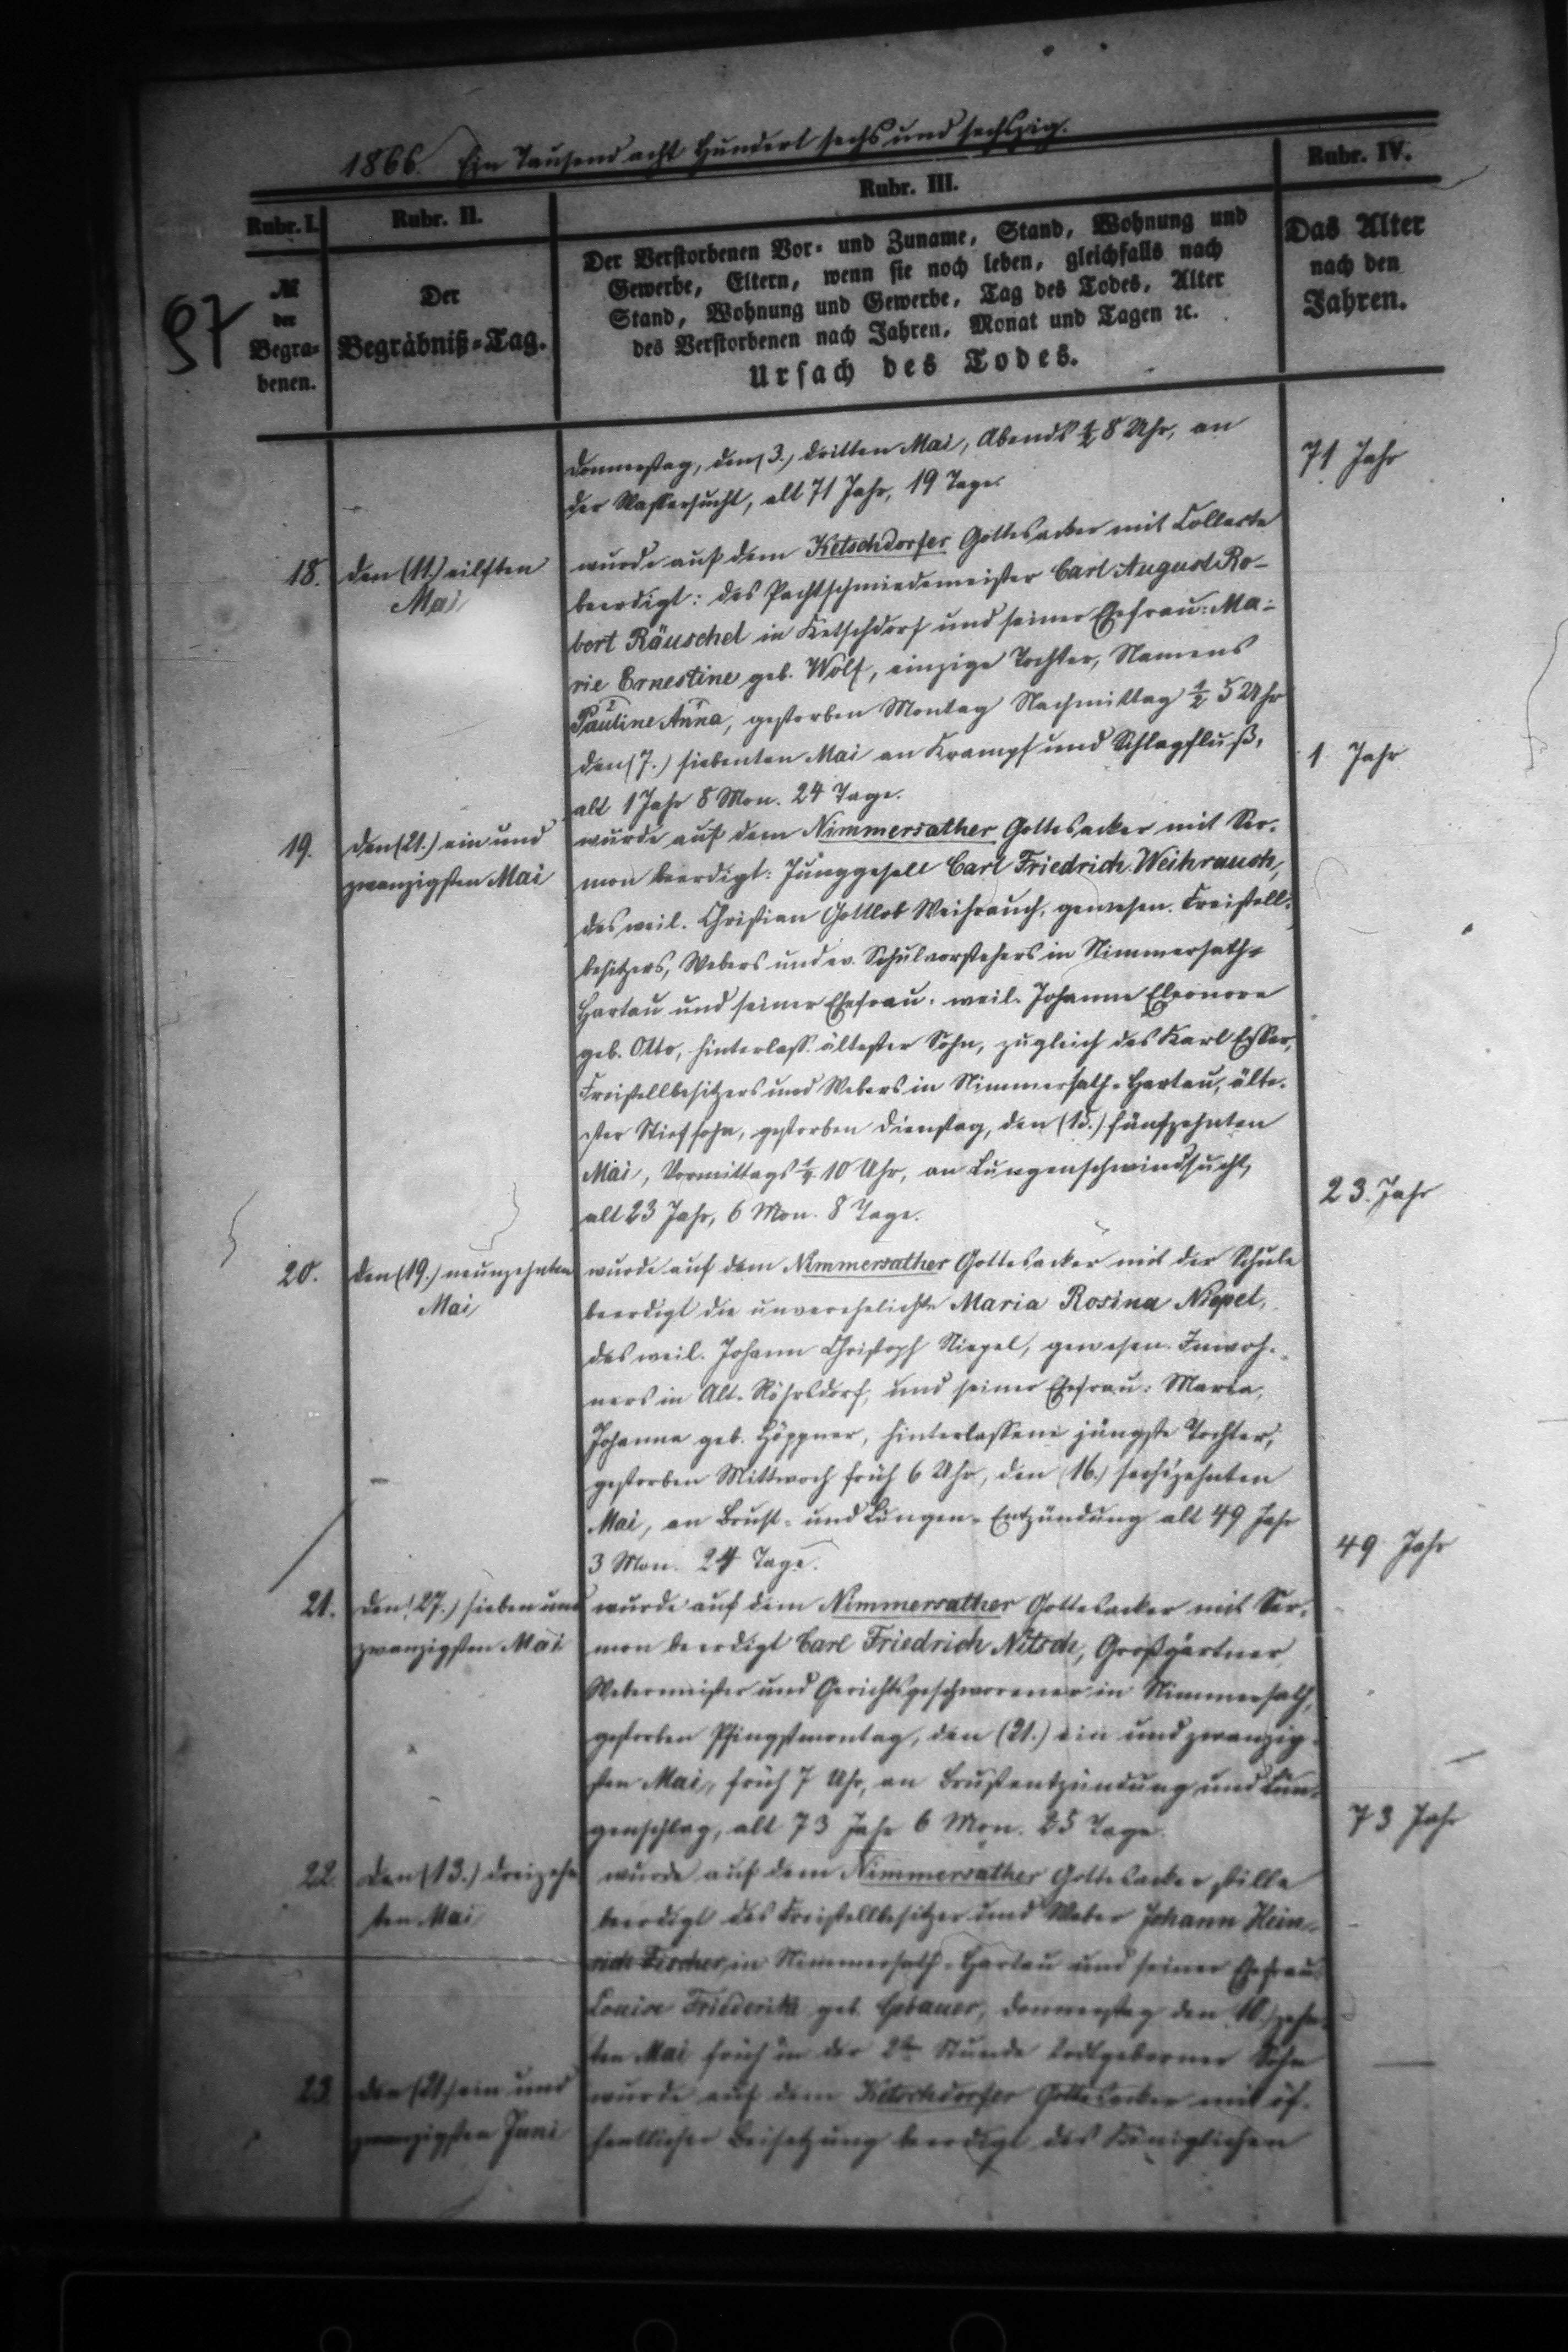 1866. Ein Tausend acht Hundert sechs und sechszig.
Rubr. I.
Rubr. II.
Rubr. III.
Rubr. IV.
97
№
der
Begra-
benen.
Der
Begräbniß-Tag.
Der Verstorbenen Vor- und Zuname, Stand, Wohnung und
Gewerbe, Eltern, wenn sie noch leben, gleichfalls nach
Stand, Wohnung und Gewerbe, Tag des Todes, Alter
des Verstorbenen nach Jahren, Monat und Tagen ꝛc.
Ursach des Todes.
Das Alter
nach den
Jahren.
Donnerstag, den (3.) dritten Mai, Abends ½ 8 Uhr, an
der Wassersucht, alt 71 Jahr, 19 Tage.
71 Jahr
18.
den (11.) eilften
Mai
wurde auf dem Ketschdorfer Gottesacker mit Collecte
beerdigt: des Pachtschmiedemeister Carl August Ro-
bert Räuschel in Ketschdorf und seiner Ehefrau: Ma-
rie Ernestine geb. Wolf, einzige Tochter, Namens
Pauline Anna, gestorben Montag Nachmittag ½ 5 Uhr
den (7.) siebenten Mai an Krampf und Schlagfluß,
alt 1 Jahr 8 Mon. 24 Tage.
1 Jahr
19.
den (21.) ein und
zwanzigsten Mai
wurde auf dem Nimmersather Gottesacker mit Ser-
mon beerdigt: Junggesell Carl Friedrich Weihrauch,
des weil. Christian Gottlob Weihrauch, gewesen. Freistell-
besitzers, Webers und ev. Schulvorstehers in Nimmersath-
Hartau und seiner Ehefrau: weil. Johanne Eleonore
geb. Otto, hinterlass. ältester Sohn, zugleich des Karl
Freistellbesitzers und Webers in Nimmersath-Hartau, älte-
ster Stiefsohn, gestorben Dienstag, den (15.) fünfzehnten
Mai, Vormittags 10 Uhr, an Lungenschwindsucht,
alt 23 Jahr, 6 Mon. 8 Tage.
23. Jahr
20.
den (19.) neunzehnten
Mai
wurde auf dem Nimmersather Gottesacker mit der Schule
beerdigt die unverehelichte Maria Rosina Niepel,
des weil. Johann Christoph Niepel, gewesen. Inwoh-
ners in Alt-Röhrsdorf, und seiner Ehefrau: Maria,
Johanna geb. Höppner, hinterlassene jüngste Tochter,
gestorben Mittwoch früh 6 Uhr, den (16.) sechszehnten
Mai, an Brust- und Lungen-Entzündung alt 49 Jahr
3 Mon. 24 Tage.
49 Jahr
21.
den (27.) sieben und
zwanzigsten Mai
wurde auf dem Nimmersather Gottesacker mit Ser-
mon beerdigt Carl Friedrich Nitsch, Großgärtner,
Webermeister und Gerichtsgeschworener in Nimmersath,
gestorben Pfingstmontag, den (21.) ein und zwanzig-
sten Mai, früh 7 Uhr, an Brustentzündung und Lun-
genschlag, alt 73 Jahr 6 Mon. 25 Tage.
73 Jahr
22.
den (13.) dreizehn
ten Mai
wurde auf dem Nimmersather Gottesacker stille
beerdigt des Freistellbesitzer und Weber Johann Hein-
rich Fischer, in Nimmersath-Hartau und seiner Ehefrau
Louise Friederike geb. Gebauer, Donnerstag den 10.) zehn-
ten Mai früh in der 2ten Stunde todtgeborner Sohn
23.
den (21.) ein und
zwanzigsten Juni
wurde auf dem Ketschdorfer Gottesacker mit öf-
fentlicher Beisetzung beerdigt des Königlichen